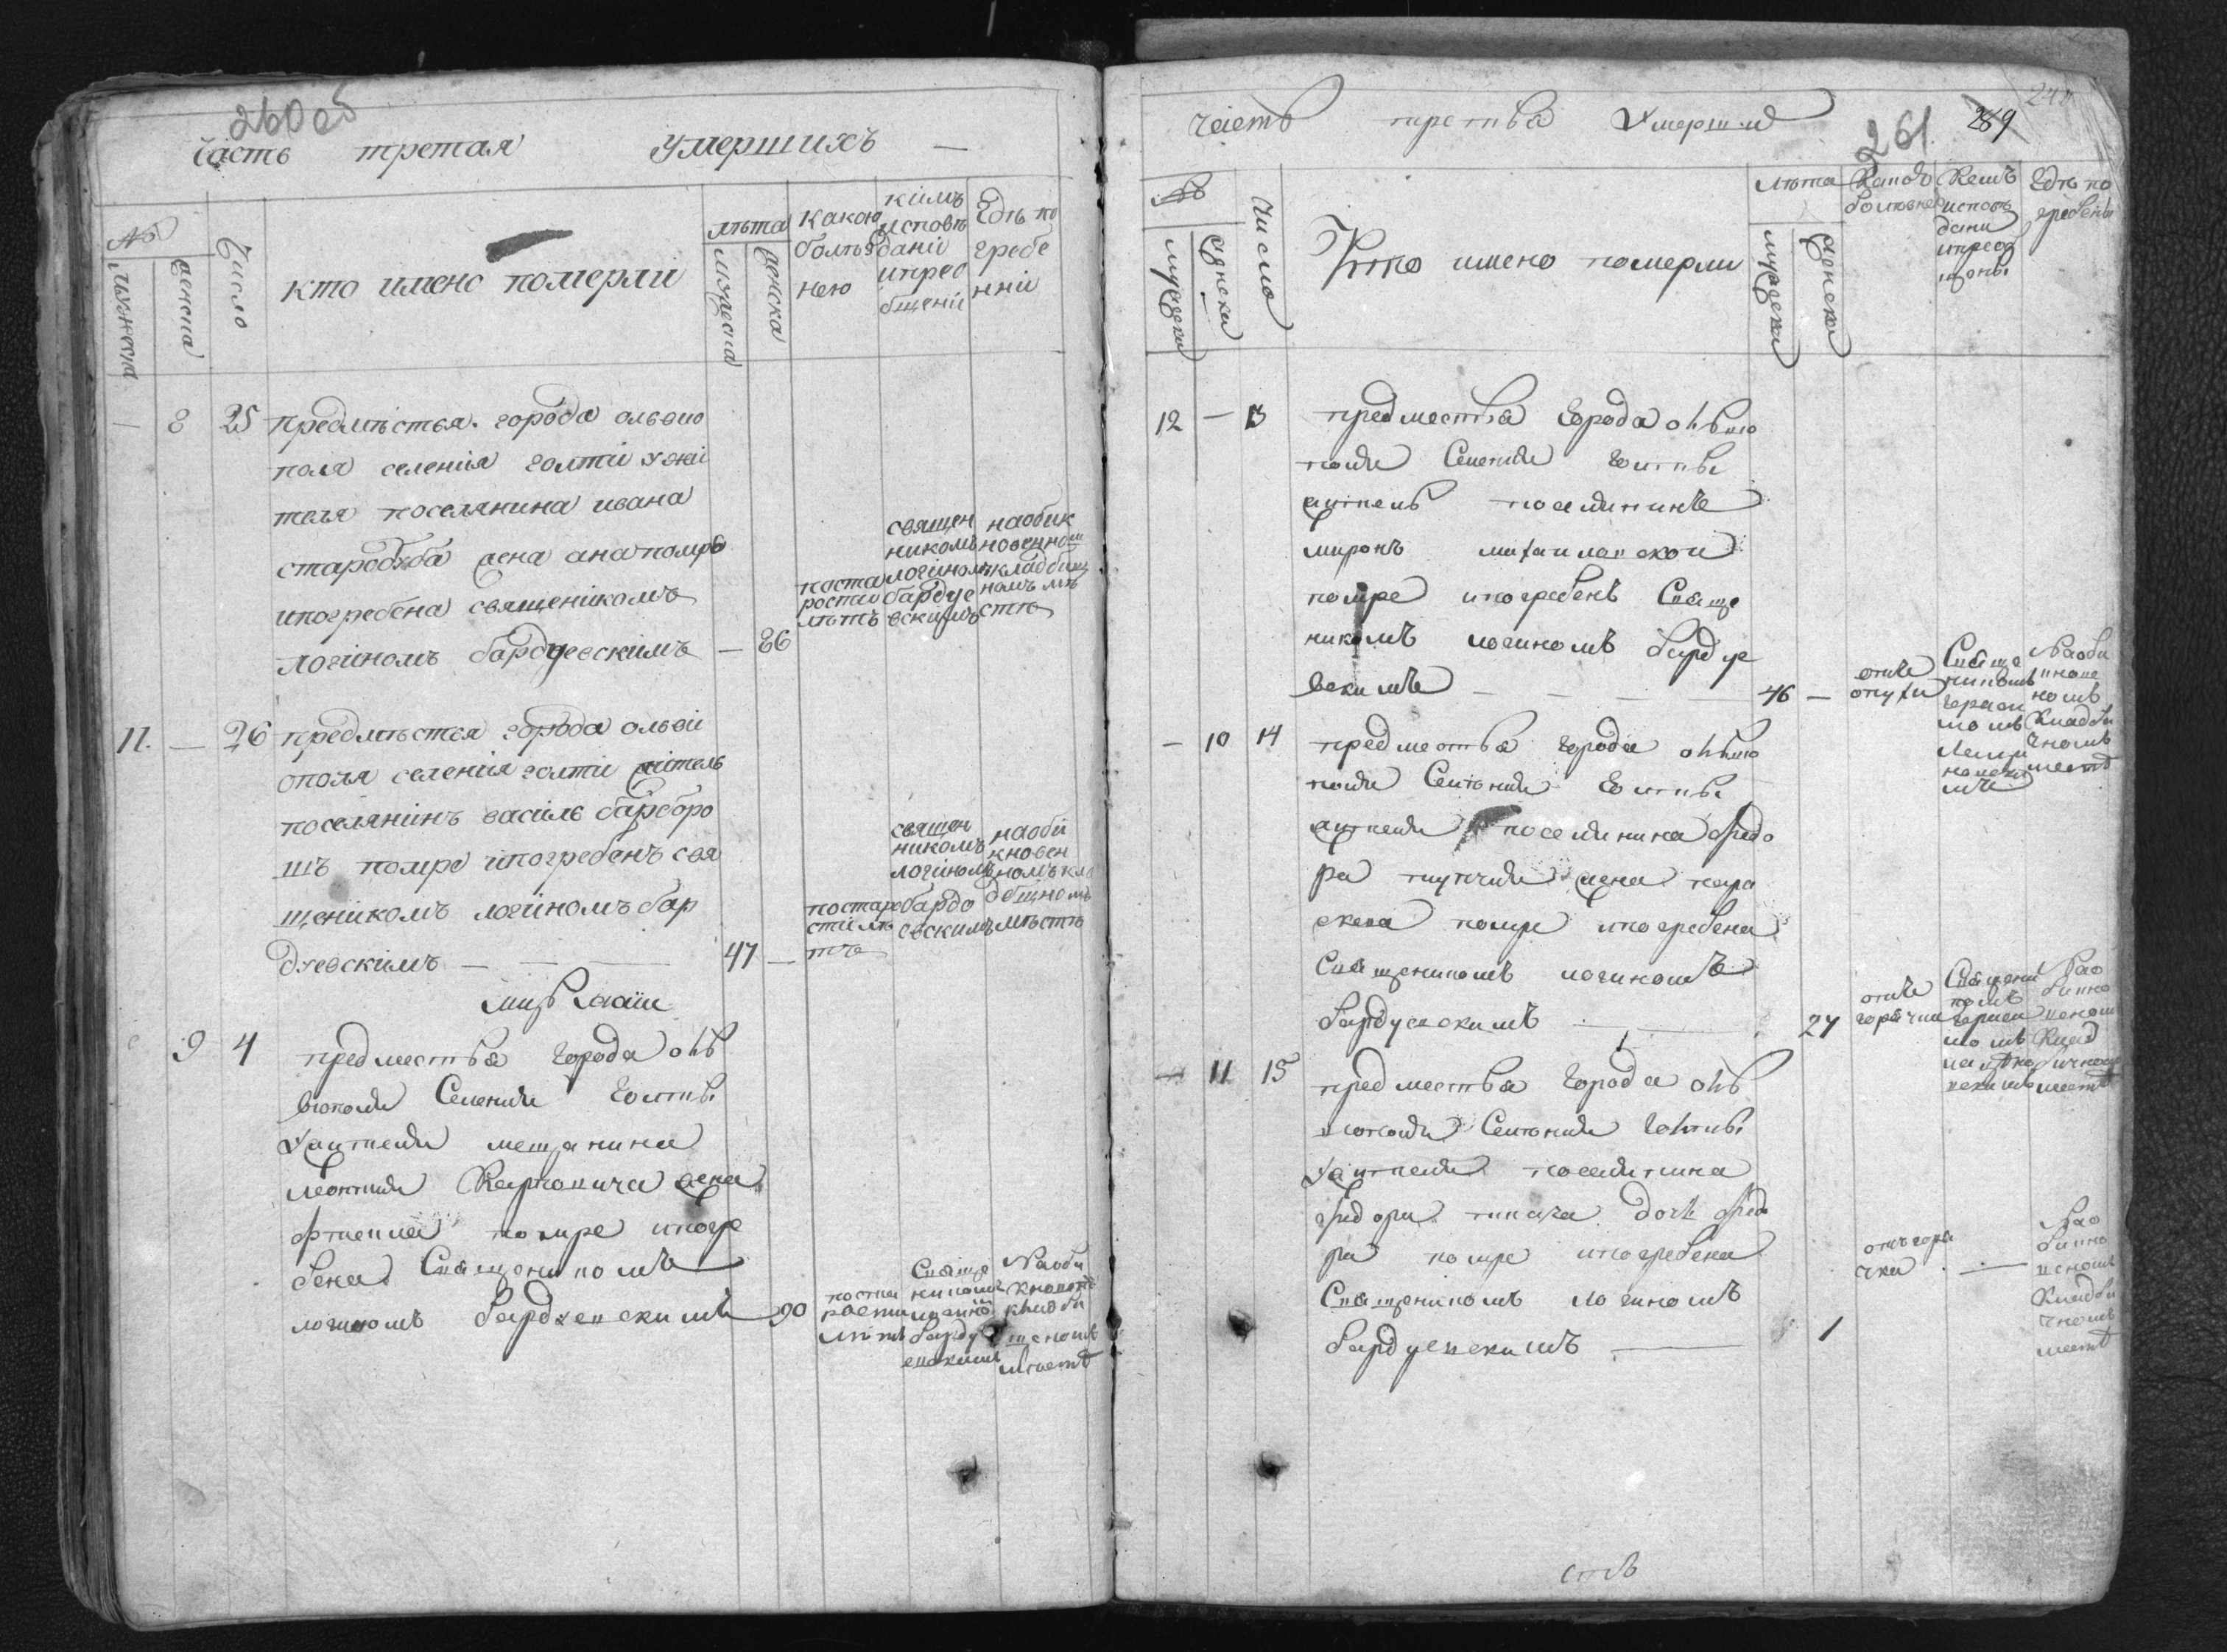 260 об
Часть третая умершихъ —
№
мужеска
женска
Число
кто имено померли
лѣта
мужеска
женска
Какою
болѣз
нею
кимъ
исповѣ
даніи
иприо
бщени
Гдѣ по
гребе
нни
— 8 25 предмѣстья города ольвио
поля селенія голтіи ужи
теля поселянина ивана
староб жена ана помре
ипогребена священікомъ
логіномъ бардуевскімъ — 86
постаростии лѣтъ
священ
никомъ
логиномъ
бардуе
вскимъ
наобик
новенном
кладбищ
номъ мѣ
стѣ
11. — 26 предмѣстья города ольви
ополя селенія голтіи житель
поселянинъ василь барборо
шъ помре ипогребенъ свя
щенікомъ логіномъ бар
дуевскімъ — — 47 —
постаро
сти лѣ
тъ
священ
никомъ
логиномъ
бардо
евскимъ
наоби
кновен
номъ кла
дбищномъ
мѣстѣ
9 4 предместья города оль
виополя Селения Голты
ужителя мещанина
леонтия жена
помре ипогре
бена Священикомъ
логиномъ Бардуевскимъ 90
Свяще
никомъ
Барду
евскимъ
Наоби
местѣ
Часть третья Умерши
261 289 240
№
мужеска
женска
Число
Кто имено померли
лѣта
мужеска
женска
Какою
болезнею
Кемъ
испов
дани
иприоб
щены
Гдѣ по
гребены
12 — 13 предместья Города ольвио
поля Селения Голты
житель поселянинъ
миронъ михаиловской
помре ипогребенъ Свяще
никомъ логиномъ Бардуе
вскимъ — — — 46 —
отъ
опухи
Свяще
никомъ
гераси
момъ
Наоби
кнове
номъ
Кладби
чномъ
местѣ
— 10 14 предместья города ольвио
поля Селения Голты
жителя поселянина федо
ра жена пара
скева помре ипогребена
Священикомъ логиномъ
Бардуевскимъ — 27
отъ
горячки
Священи
комъ
гераси
момъ
Нао
бикно
веном
Клад
бичном
местѣ
— 11 15 предместья Города оль
виополя Селения Голты
ужителя поселянина
федора ткача дочь федо
ра помре ипогребена
Священикомъ логиномъ
Бардуевскимъ — 1
отъ горя
чки
—
Нао
бикно
веномъ
Кладби
чномъ
местѣ